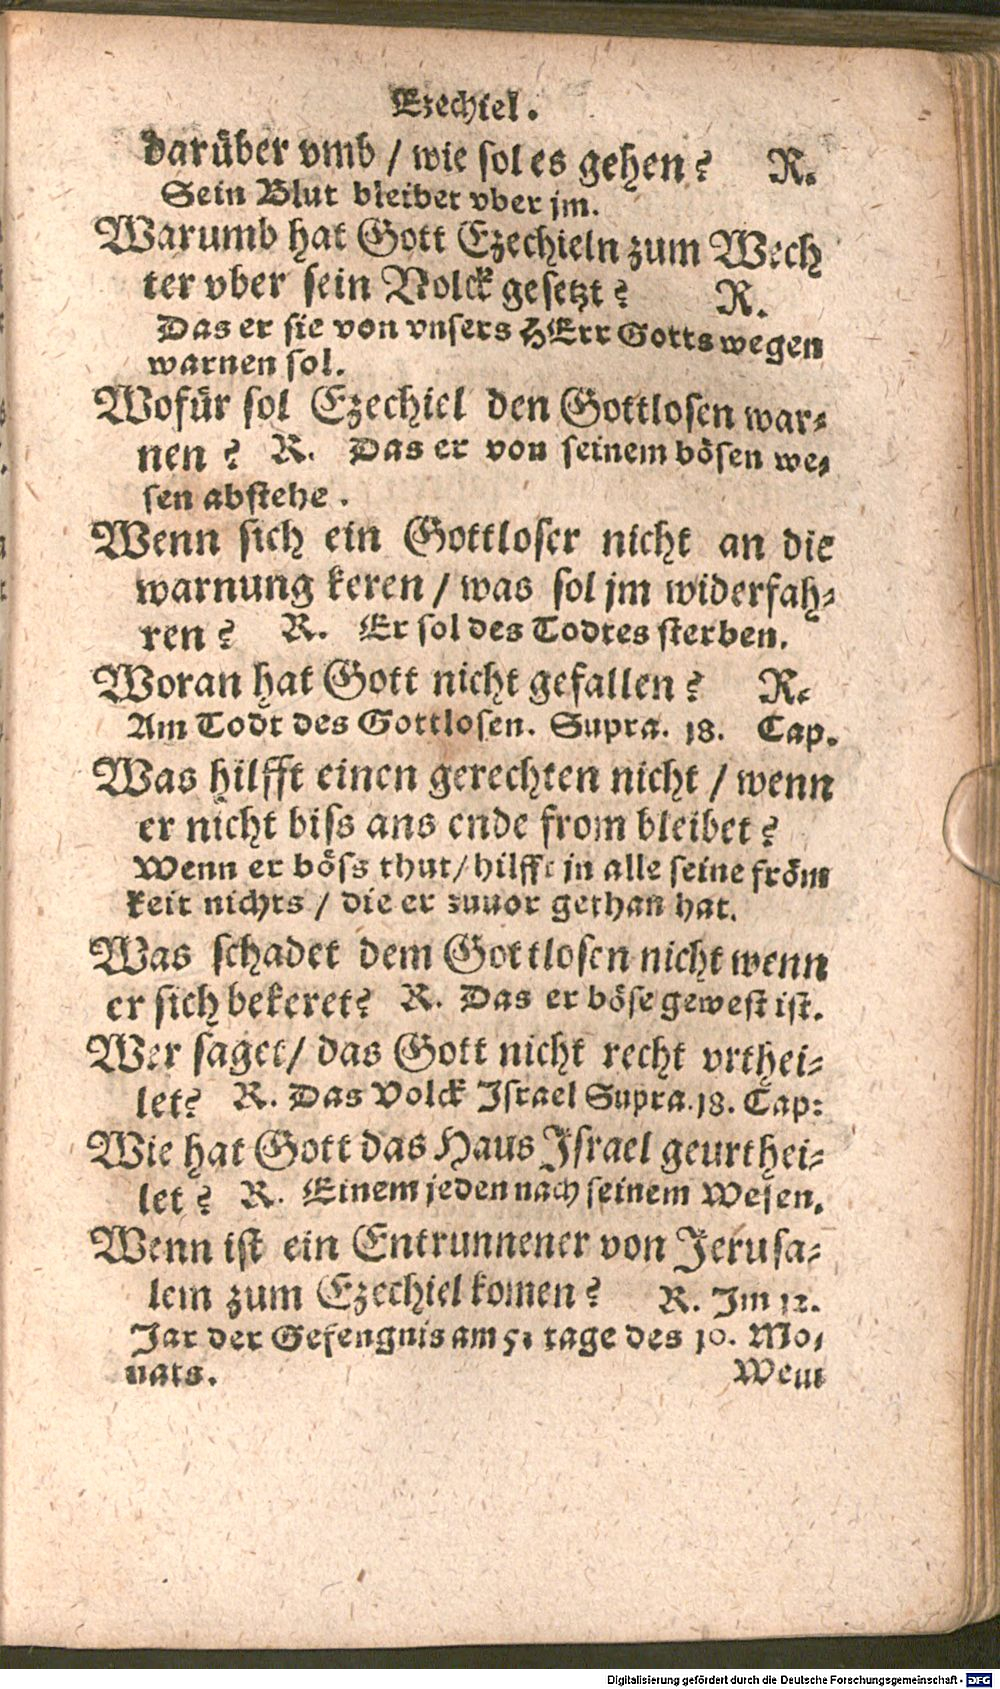 Ezechiel.
darüber vmb / wie sol es gehen? R.
Sein Blut bleibet vber jm.
Warumb hat Gott Ezechieln zum Wech
ter vber sein Volck gesetzt? R.
Das er sie von vnsers HErr Gotts wegen
warnen sol.
Wofür sol Ezechiel den Gottlosen war-
nen? R. Das er von seinem bösen we-
sen abstehe.
Wenn sich ein Gottloser nicht an die
warnung keren / was sol jm widerfah-
ren? R. Er sol des Todtes sterben.
Woran hat Gott nicht gefallen? R.
Am Todt des Gottlosen. Supra. 18. Cap.
Was hilfft einen gerechten nicht / wenn
er nicht biss ans ende from bleibet?
Wenn er böss thut / hilfft jn alle seine fröm
keit nichts / die er zuuor gethan hat.
Was schadet dem Gottlosen nicht wenn
er sich bekeret? R. Das er böse gewest ist.
Wer saget / das Gott nicht recht vrthei-
let? R. Das Volck Israel Supra. 18. Cap:
Wie hat Gott das Haus Israel geurthei-
let? R. Einem jeden nach seinem Wesen.
Wenn ist ein Entrunnener von Jerusa-
lem zum Ezechiel komen? R. Im 12.
Jar der Gefengnis am 51 tage des 10. Mo-
nats. Wem
Digitalisierung gefördert durch die Deutsche Forschungsgemeinschaft - DFG